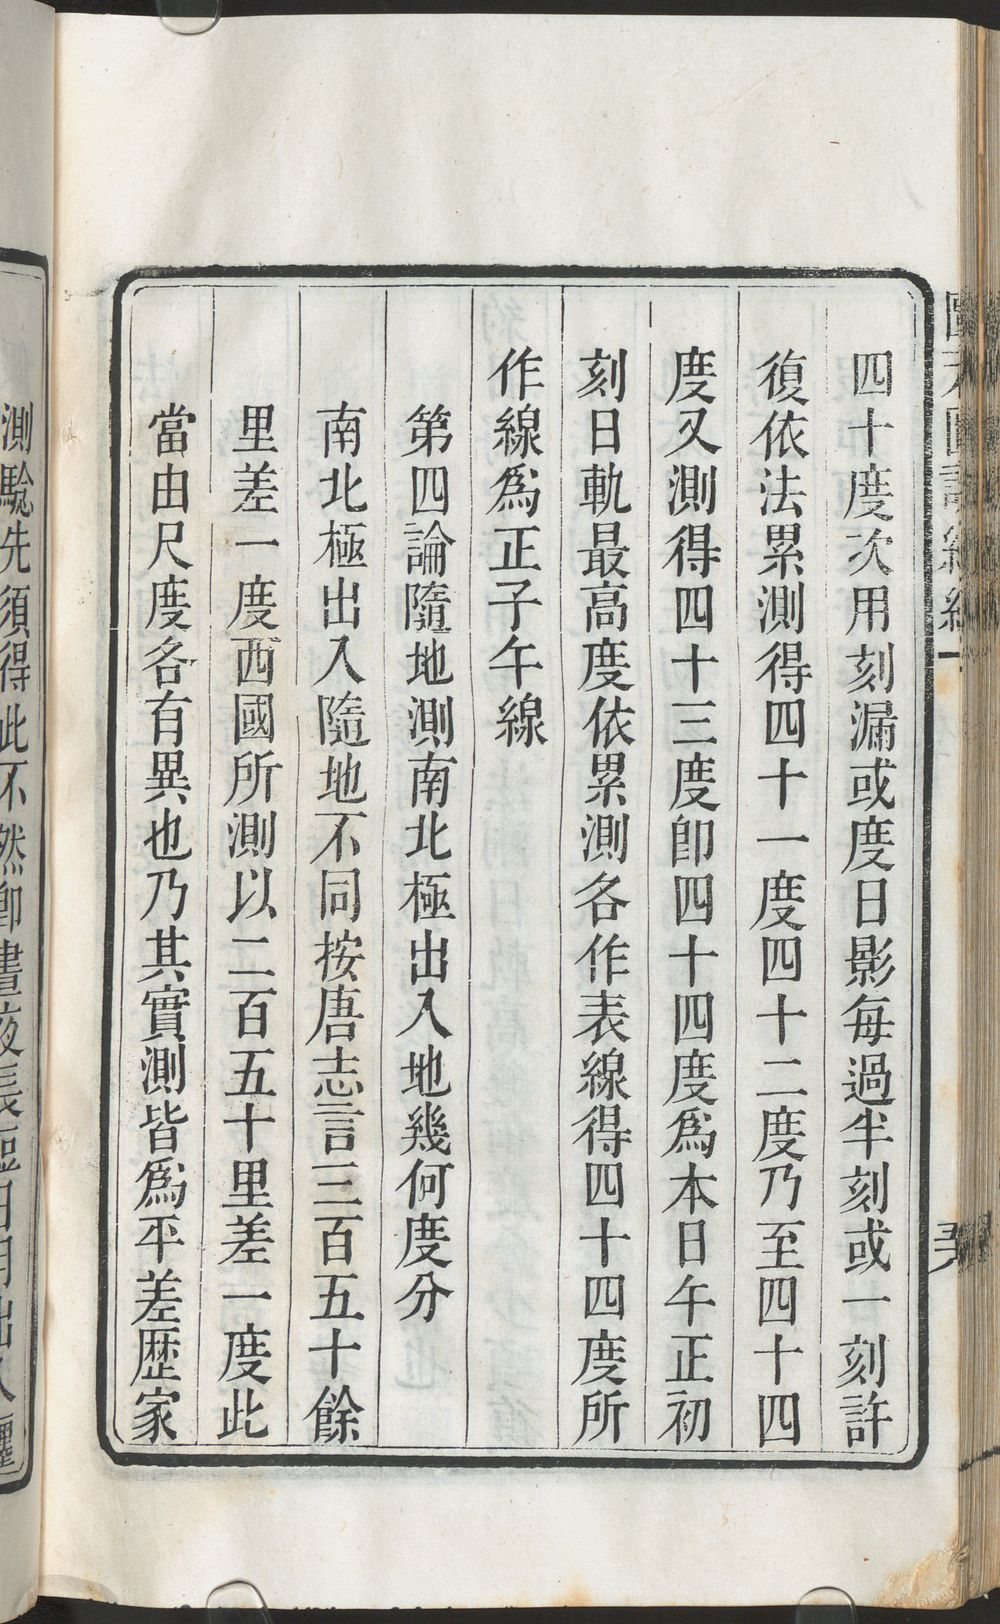 四十度次用刻漏或度日影每過半刻或一刻許
復依法累測得四十一度四十二度乃至四十四
度又測得四十三度卽四十四度爲本日午正初
刻日軌最高度依累測各作表線得四十四度所
作線爲正子午線
第四論隨地測南北極出入地幾何度分
南北極出入隨地不同按唐志言三百五十餘
里差一度西國所測以二百五十里差一度此
當由尺度各有異也乃其實測皆爲平差歷家
測騐先須得此不然卽晝夜長短日月出入